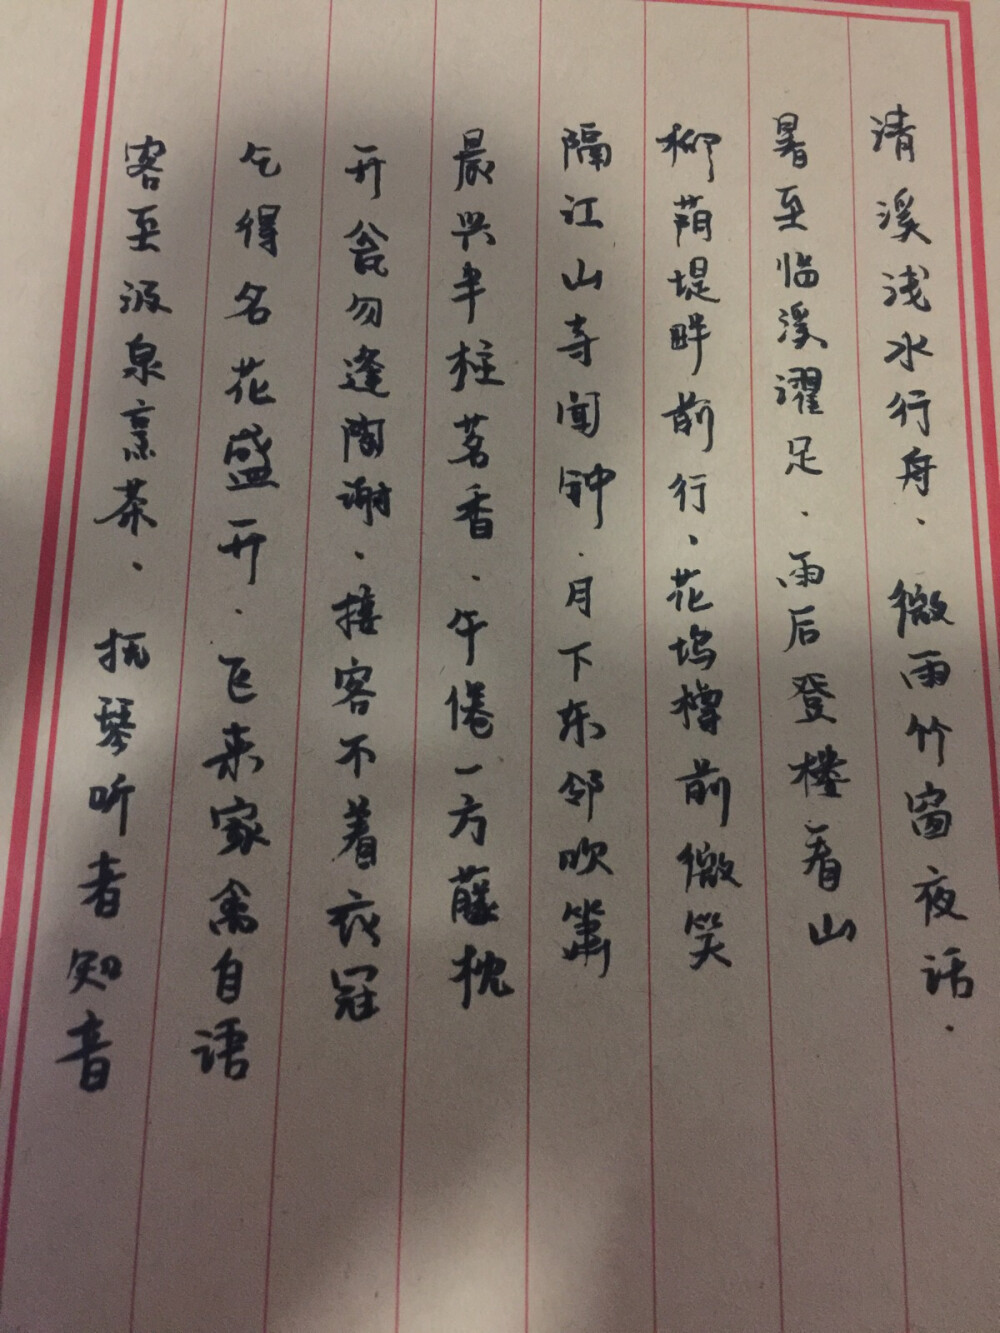 清溪浅水行舟、微雨竹窗夜话.
暑至临溪濯足.雨后登楼看山
柳荫堤畔前行、花坞樽前微笑
隔江山寺闻钟.月下东邻吹箫
晨兴半柱茗香.午倦一方藤枕
开瓮勿逢陶谢.接客不着衣冠
乞得名花盛开.飞来家禽自语
客至汲泉烹茶.抚琴听者知音